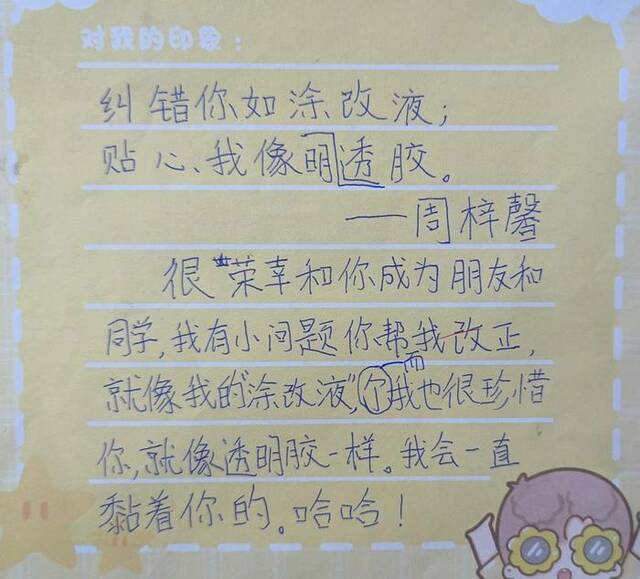 对我的印象：
纠错你如涂改液；
贴心、我像明透胶。
——周梓馨
很荣幸和你成为朋友和
同学，我有小问题你帮我改正，
就像我的“涂改液”，个而我也很珍惜
你，就像透明胶一样。我会一直
黏着你的。哈哈！